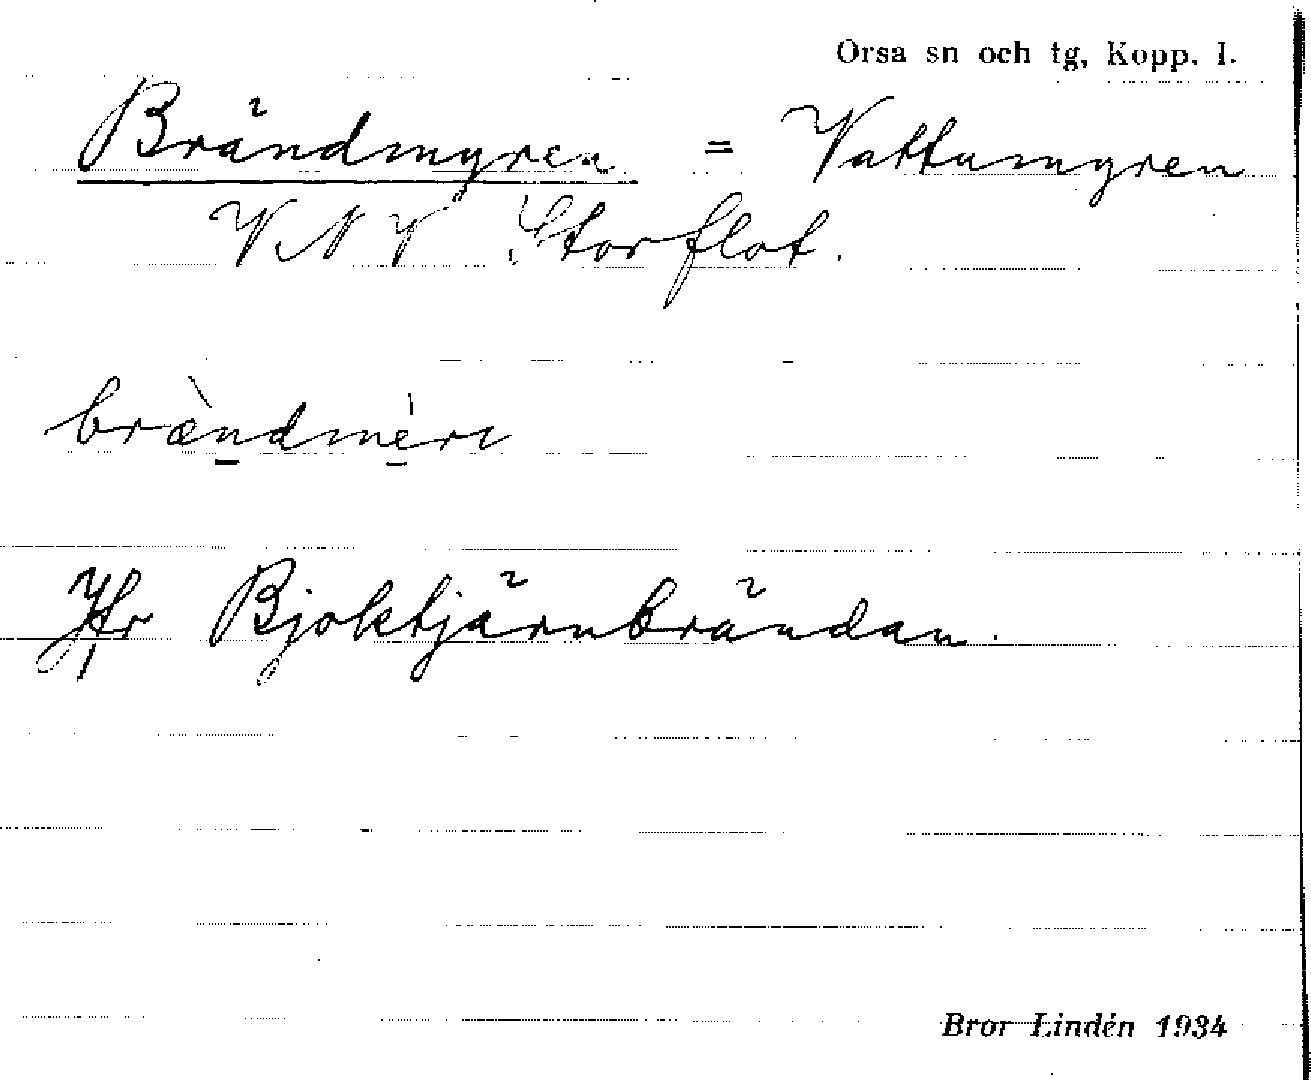 Orsa sn och tg, Kopp. l.
Brändmyren = Vattumyren
V.N.V Storflot.
bræ̀ndmèrı
Jfr Bjoktjärnbrändan.
Bror Lindén 1934